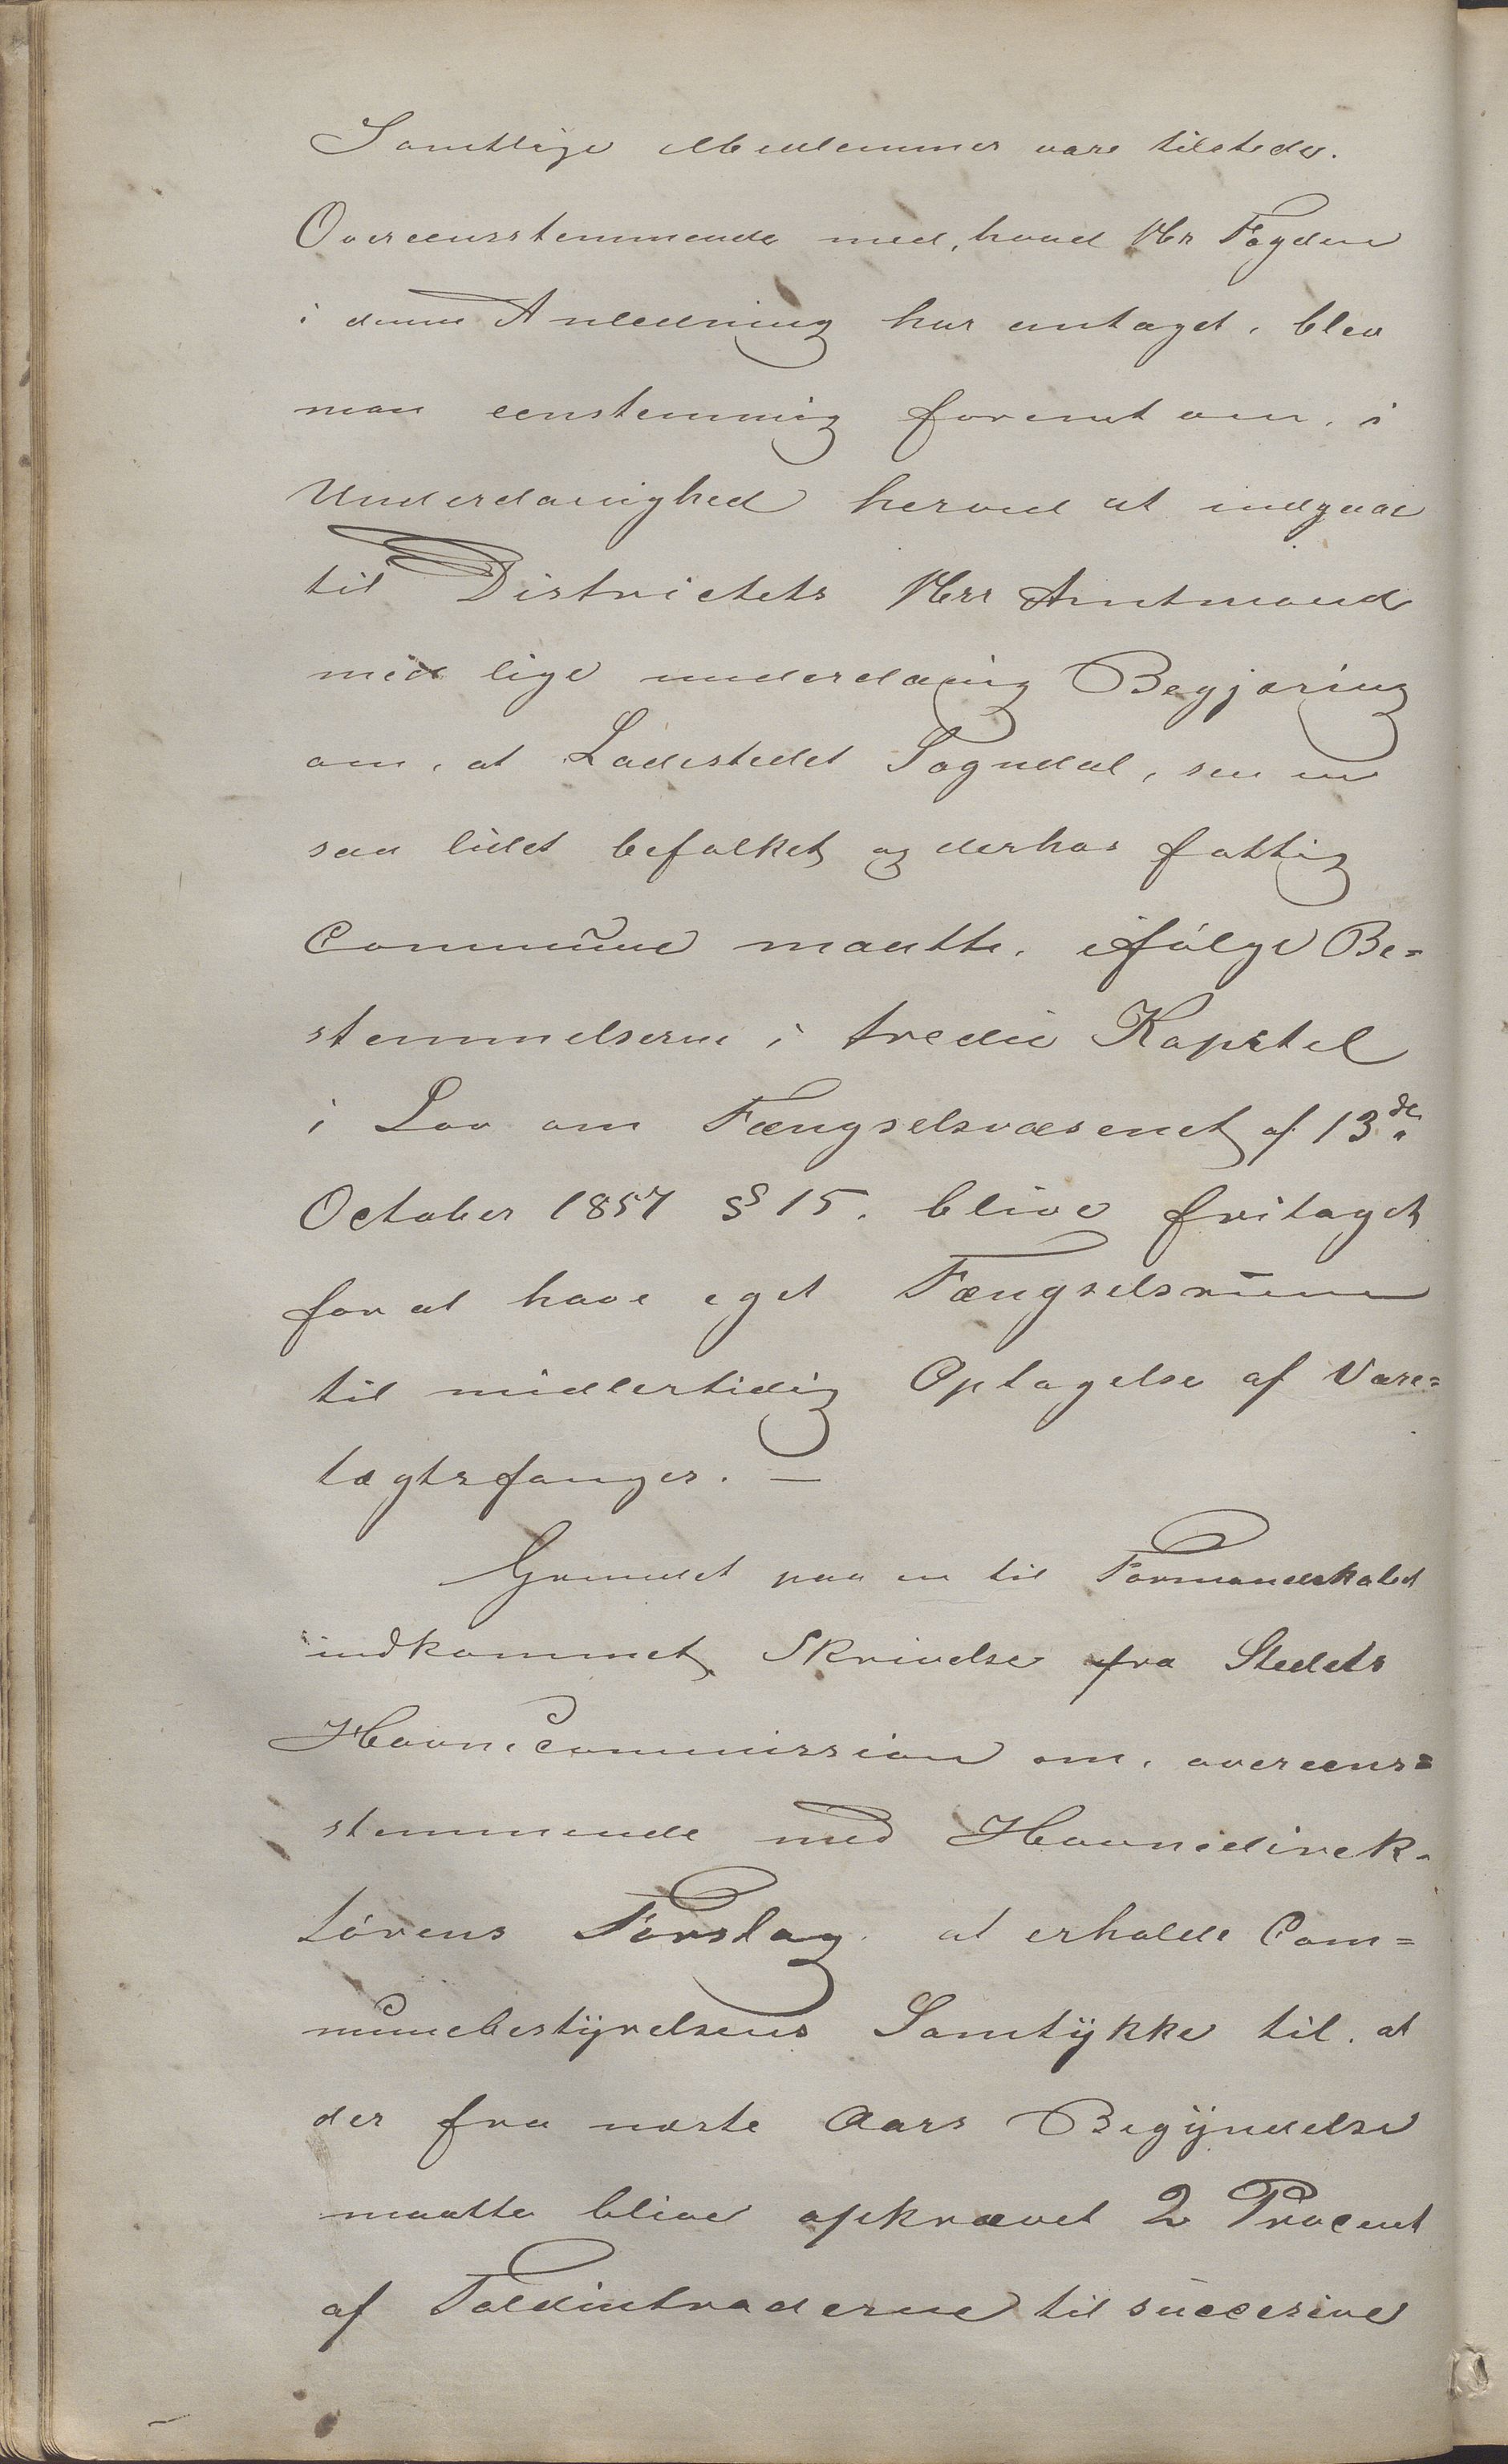 Samtlige Medlemmer vare tilstede.
Overeensstemmende med, hvad Hr Fogden
i denne Anledning har antaget, blev
man eenstemmig foreent om, i
Underdanighed herved at indgaae
til Districtets Herr Amtmand
med lige underdanig Begjæring
om, at Ladestedet Sogndal, som en
saa lidet befolket og derhos fattig
Commune maatte, ifølge Be=
stemmelserne i tredie Kapitel
i Lov om Fængselsvæsenet af 13de
October 1857 § 15. blive fritaget
for at have eget Fængselsrum
til midlertidig Optagelse af Vare=
tægtsfanger. —
Grundet paa en til Formandskabet
indkommet Skrivelse fra Stedets
Havnecommission om, overeens=
stemmende med Havnedirek-
tørens Forslag at erholde Com=
munebestyrelsens Samtykke til, at
der fra næste Aars Begyndelse
maatte blive opkrævet 2 Procent
af Toldintraderne til succesive